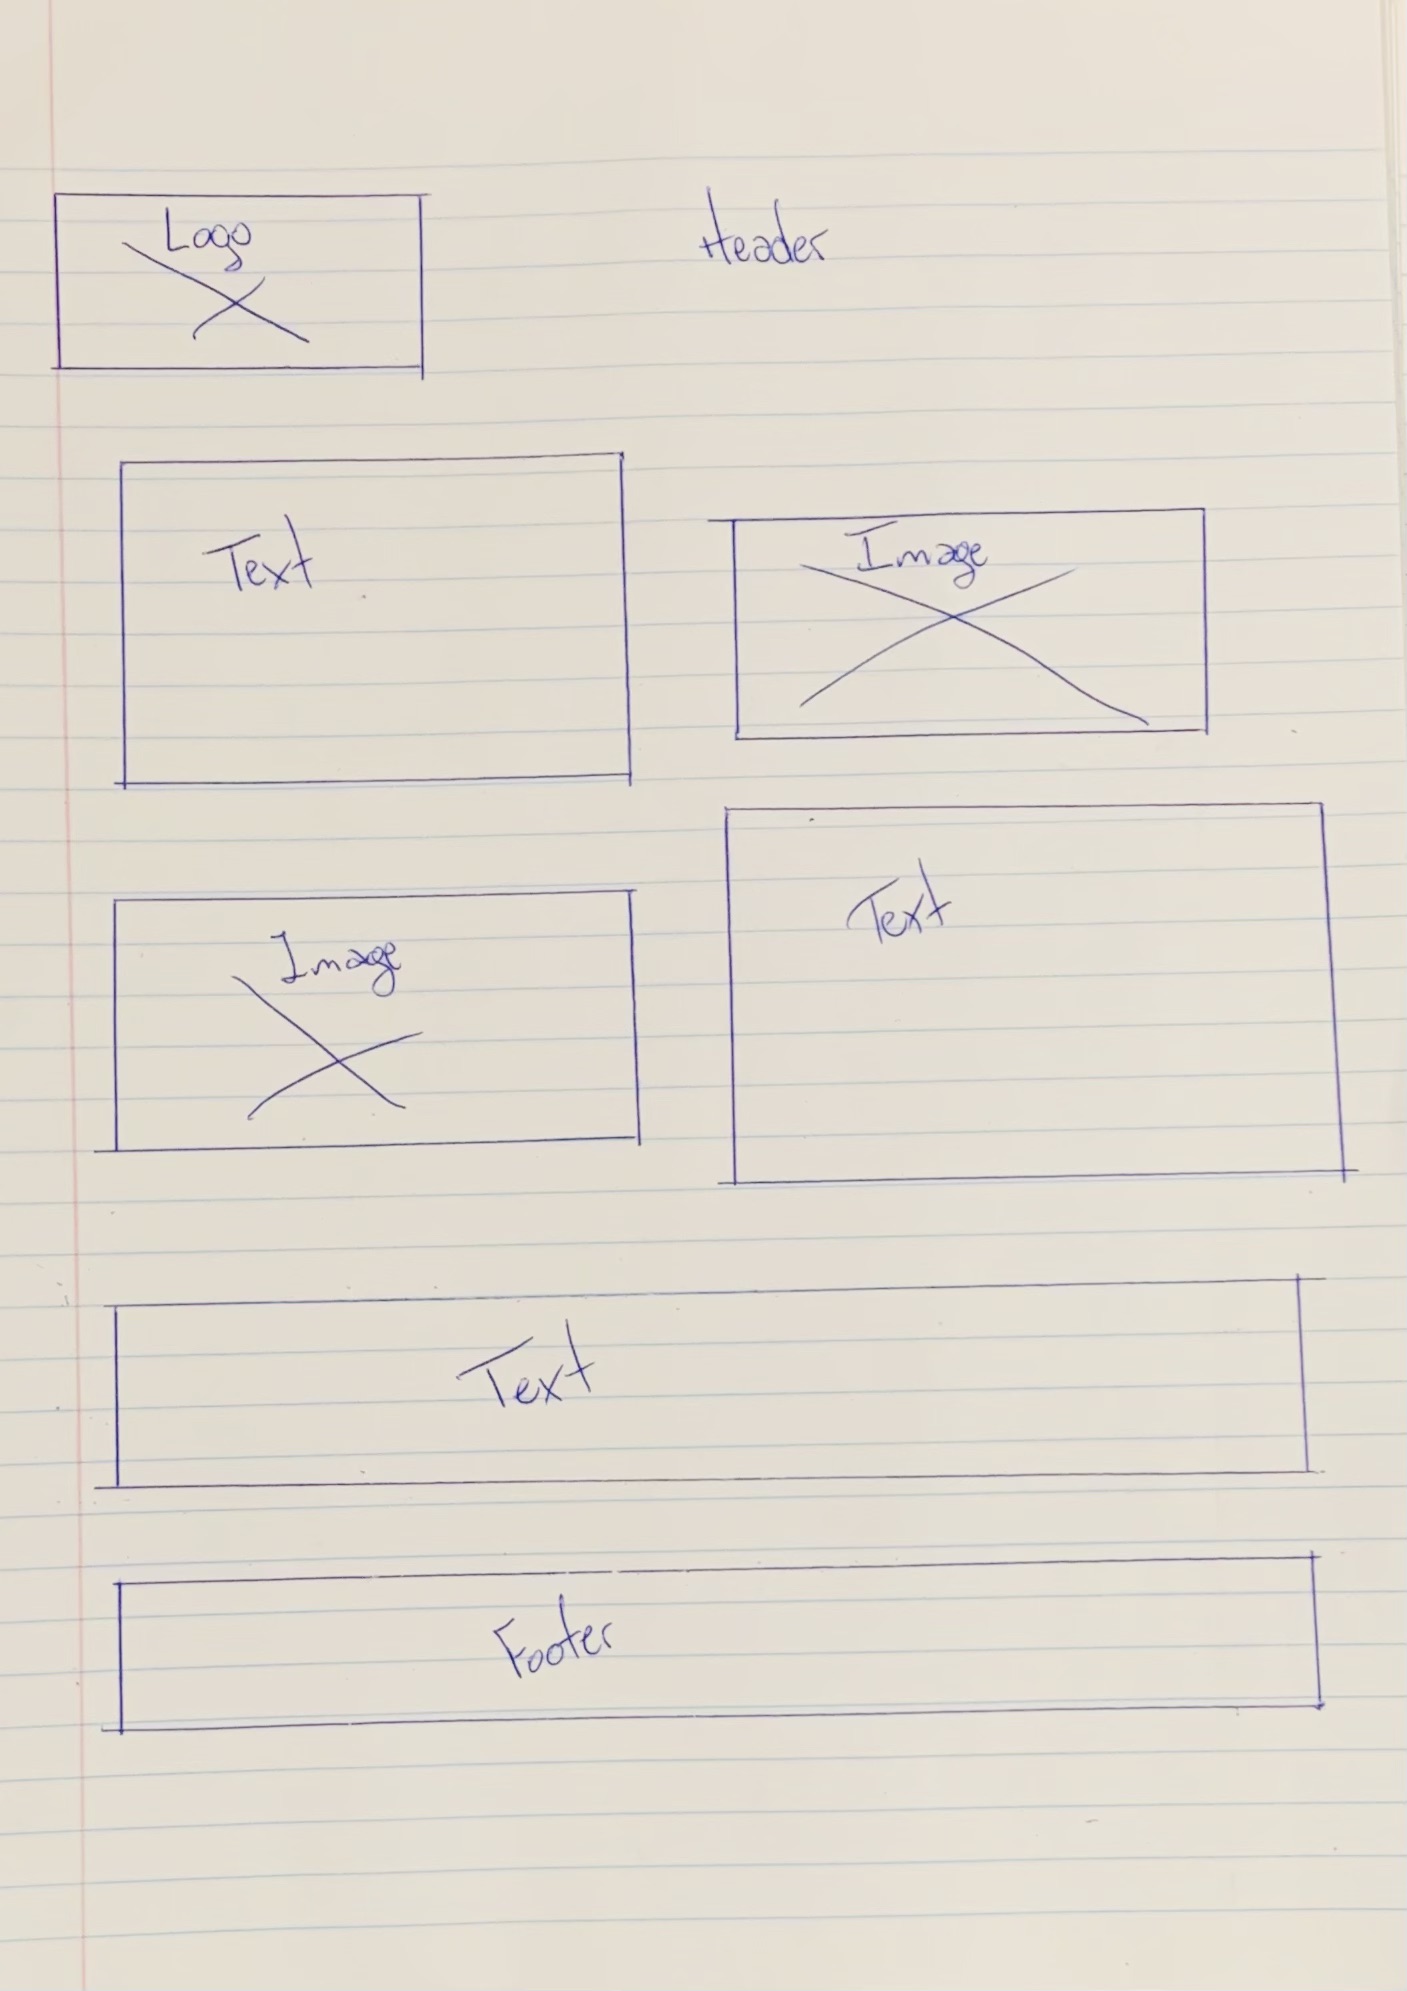 Logo
Header
Text
Image
Image
Text
Text
Footer